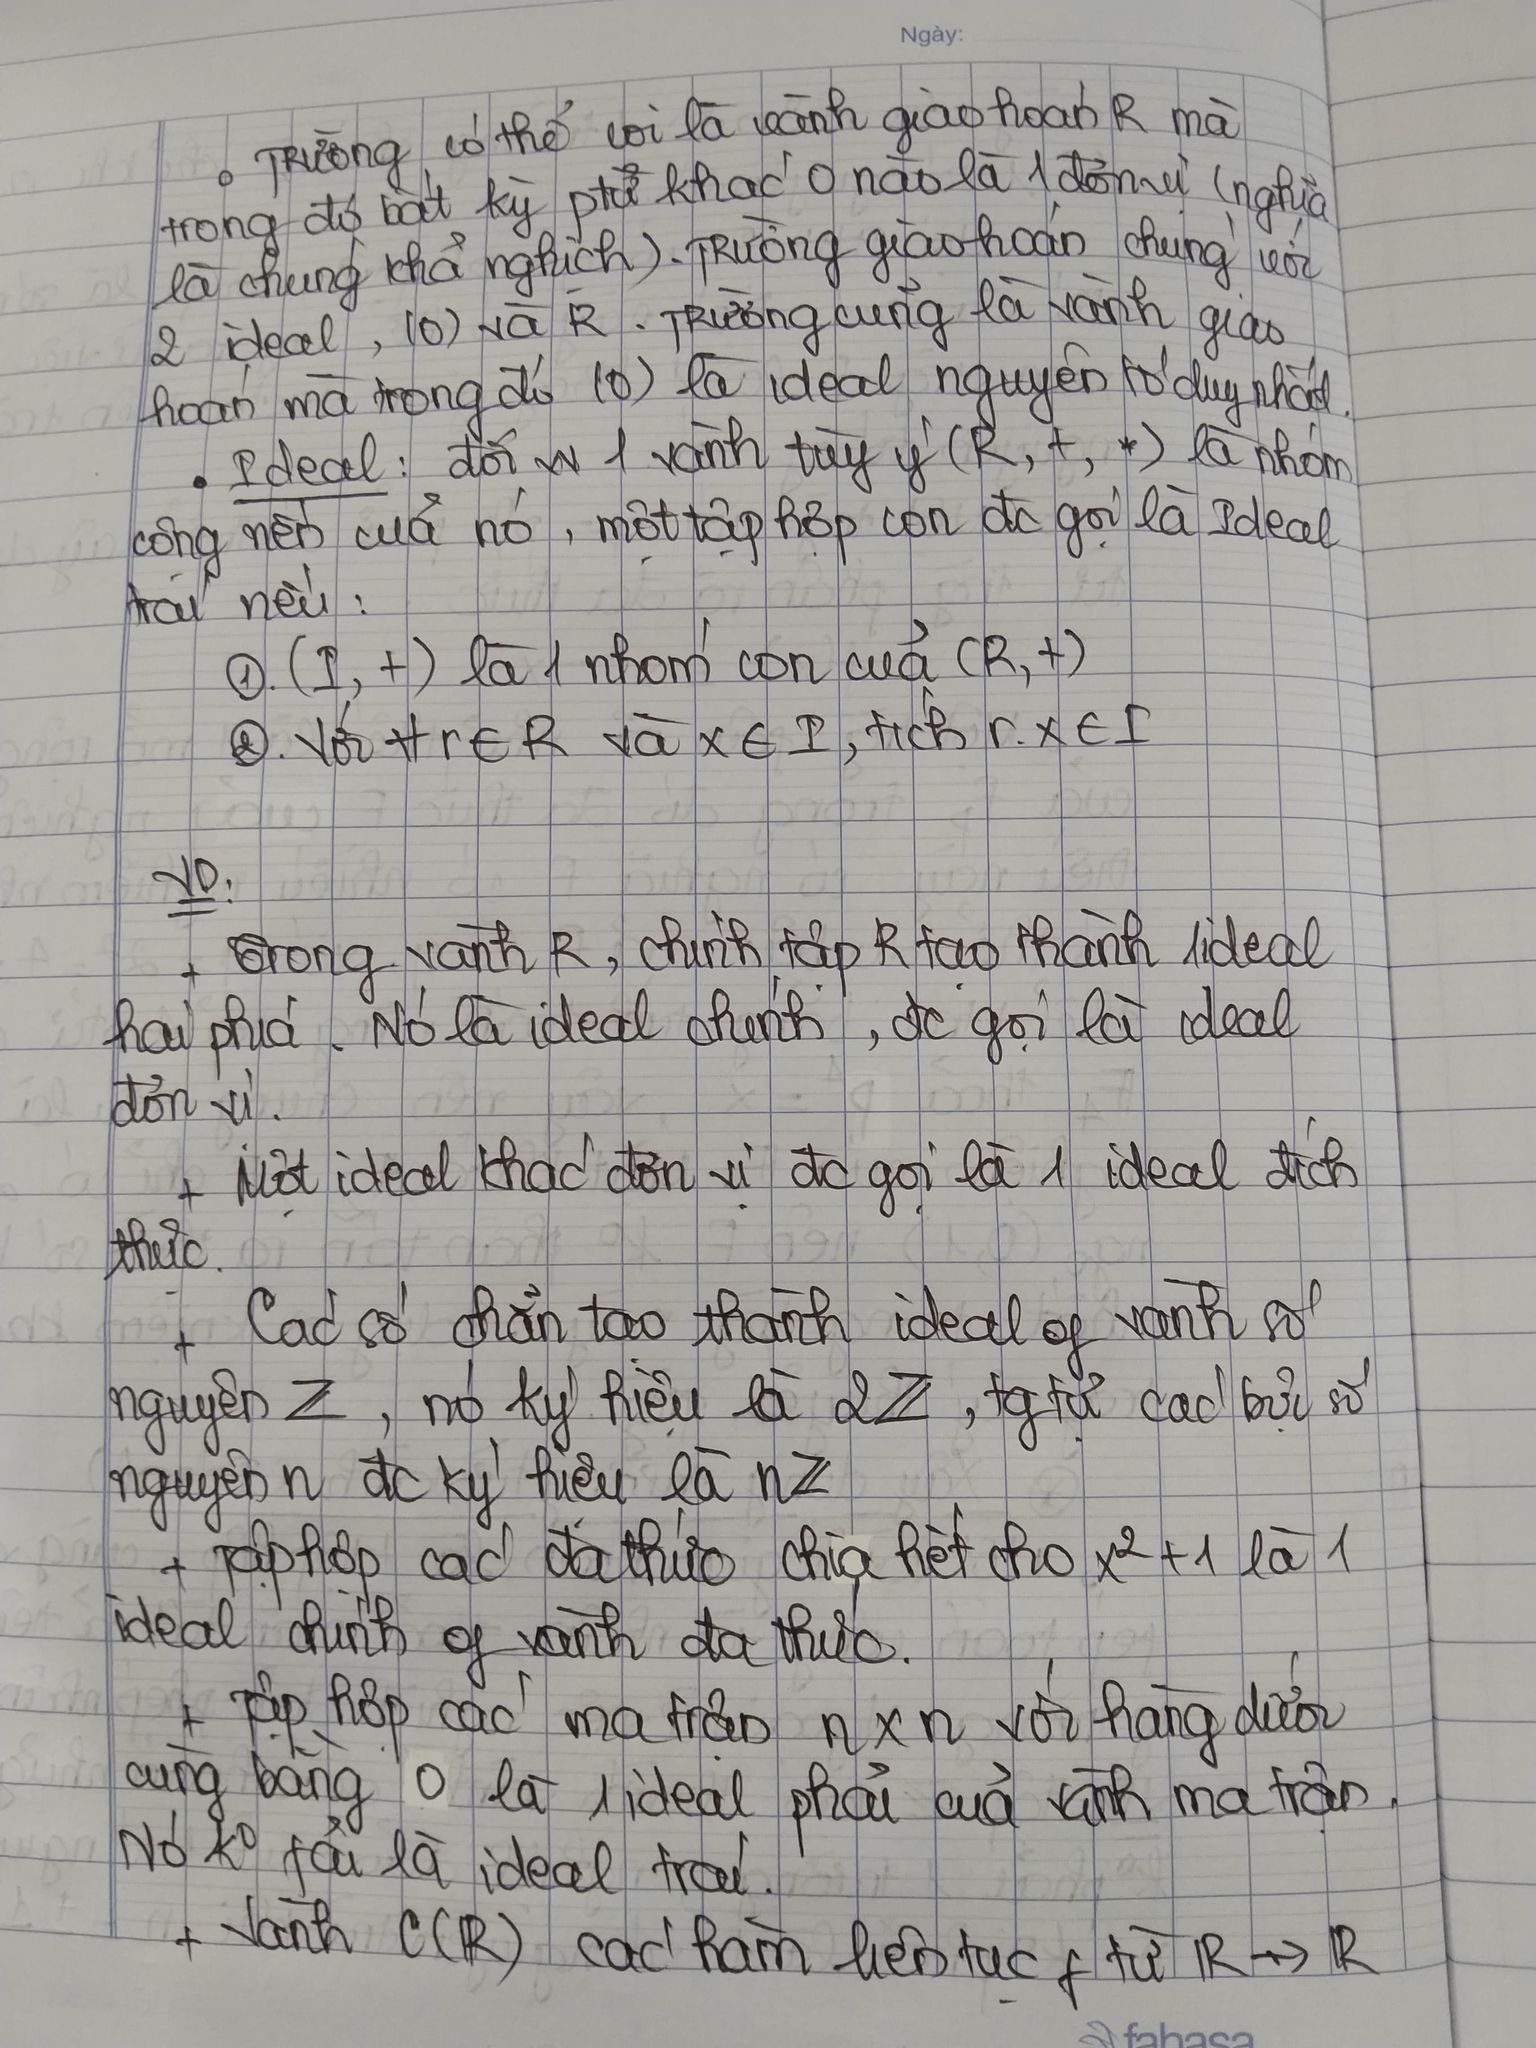 Ngày:
• Trường có thể coi là vành giao hoán R mà
trong đó bất kỳ ptử khác 0 nào là 1 đơn vị (nghĩa
là chúng khả nghịch). Trường giao hoán chúng với
2 ideal, (0) và R. Trường cũng là vành giao
hoán mà trong đó (0) là ideal nguyên tố duy nhất.
• Ideal: đối vs 1 vành tùy ý (R, +, *) là nhóm
cộng nền của nó, một tập hợp con đc gọi là Ideal
trái nếu:
①. (I, +) là 1 nhóm con của (R, +)
②. Với ∀ r ∈ R và x ∈ I, tích r.x ∈ I
VD:
+ Trong vành R, chính tập R tạo thành 1 ideal
hai phía. Nó là ideal chính, đc gọi là ideal
đơn vị.
+ Một ideal khác đơn vị đc gọi là 1 ideal đích
thực.
+ Các số chẵn tạo thành ideal of vành số
nguyên ℤ, nó ký hiệu là 2ℤ, tg tự các bội số
nguyên n đc ký hiệu là nℤ
+ Tập hợp các đa thức chia hết cho x²+1 là 1
ideal chính of vành đa thức.
+ Tập hợp các ma trận n x n với hàng dưới
cùng bằng 0 là 1 ideal phải của vành ma trận.
Nó k⁰ fải là ideal trái.
+ Vành C(ℝ) các hàm liên tục f từ ℝ → ℝ
fahasa